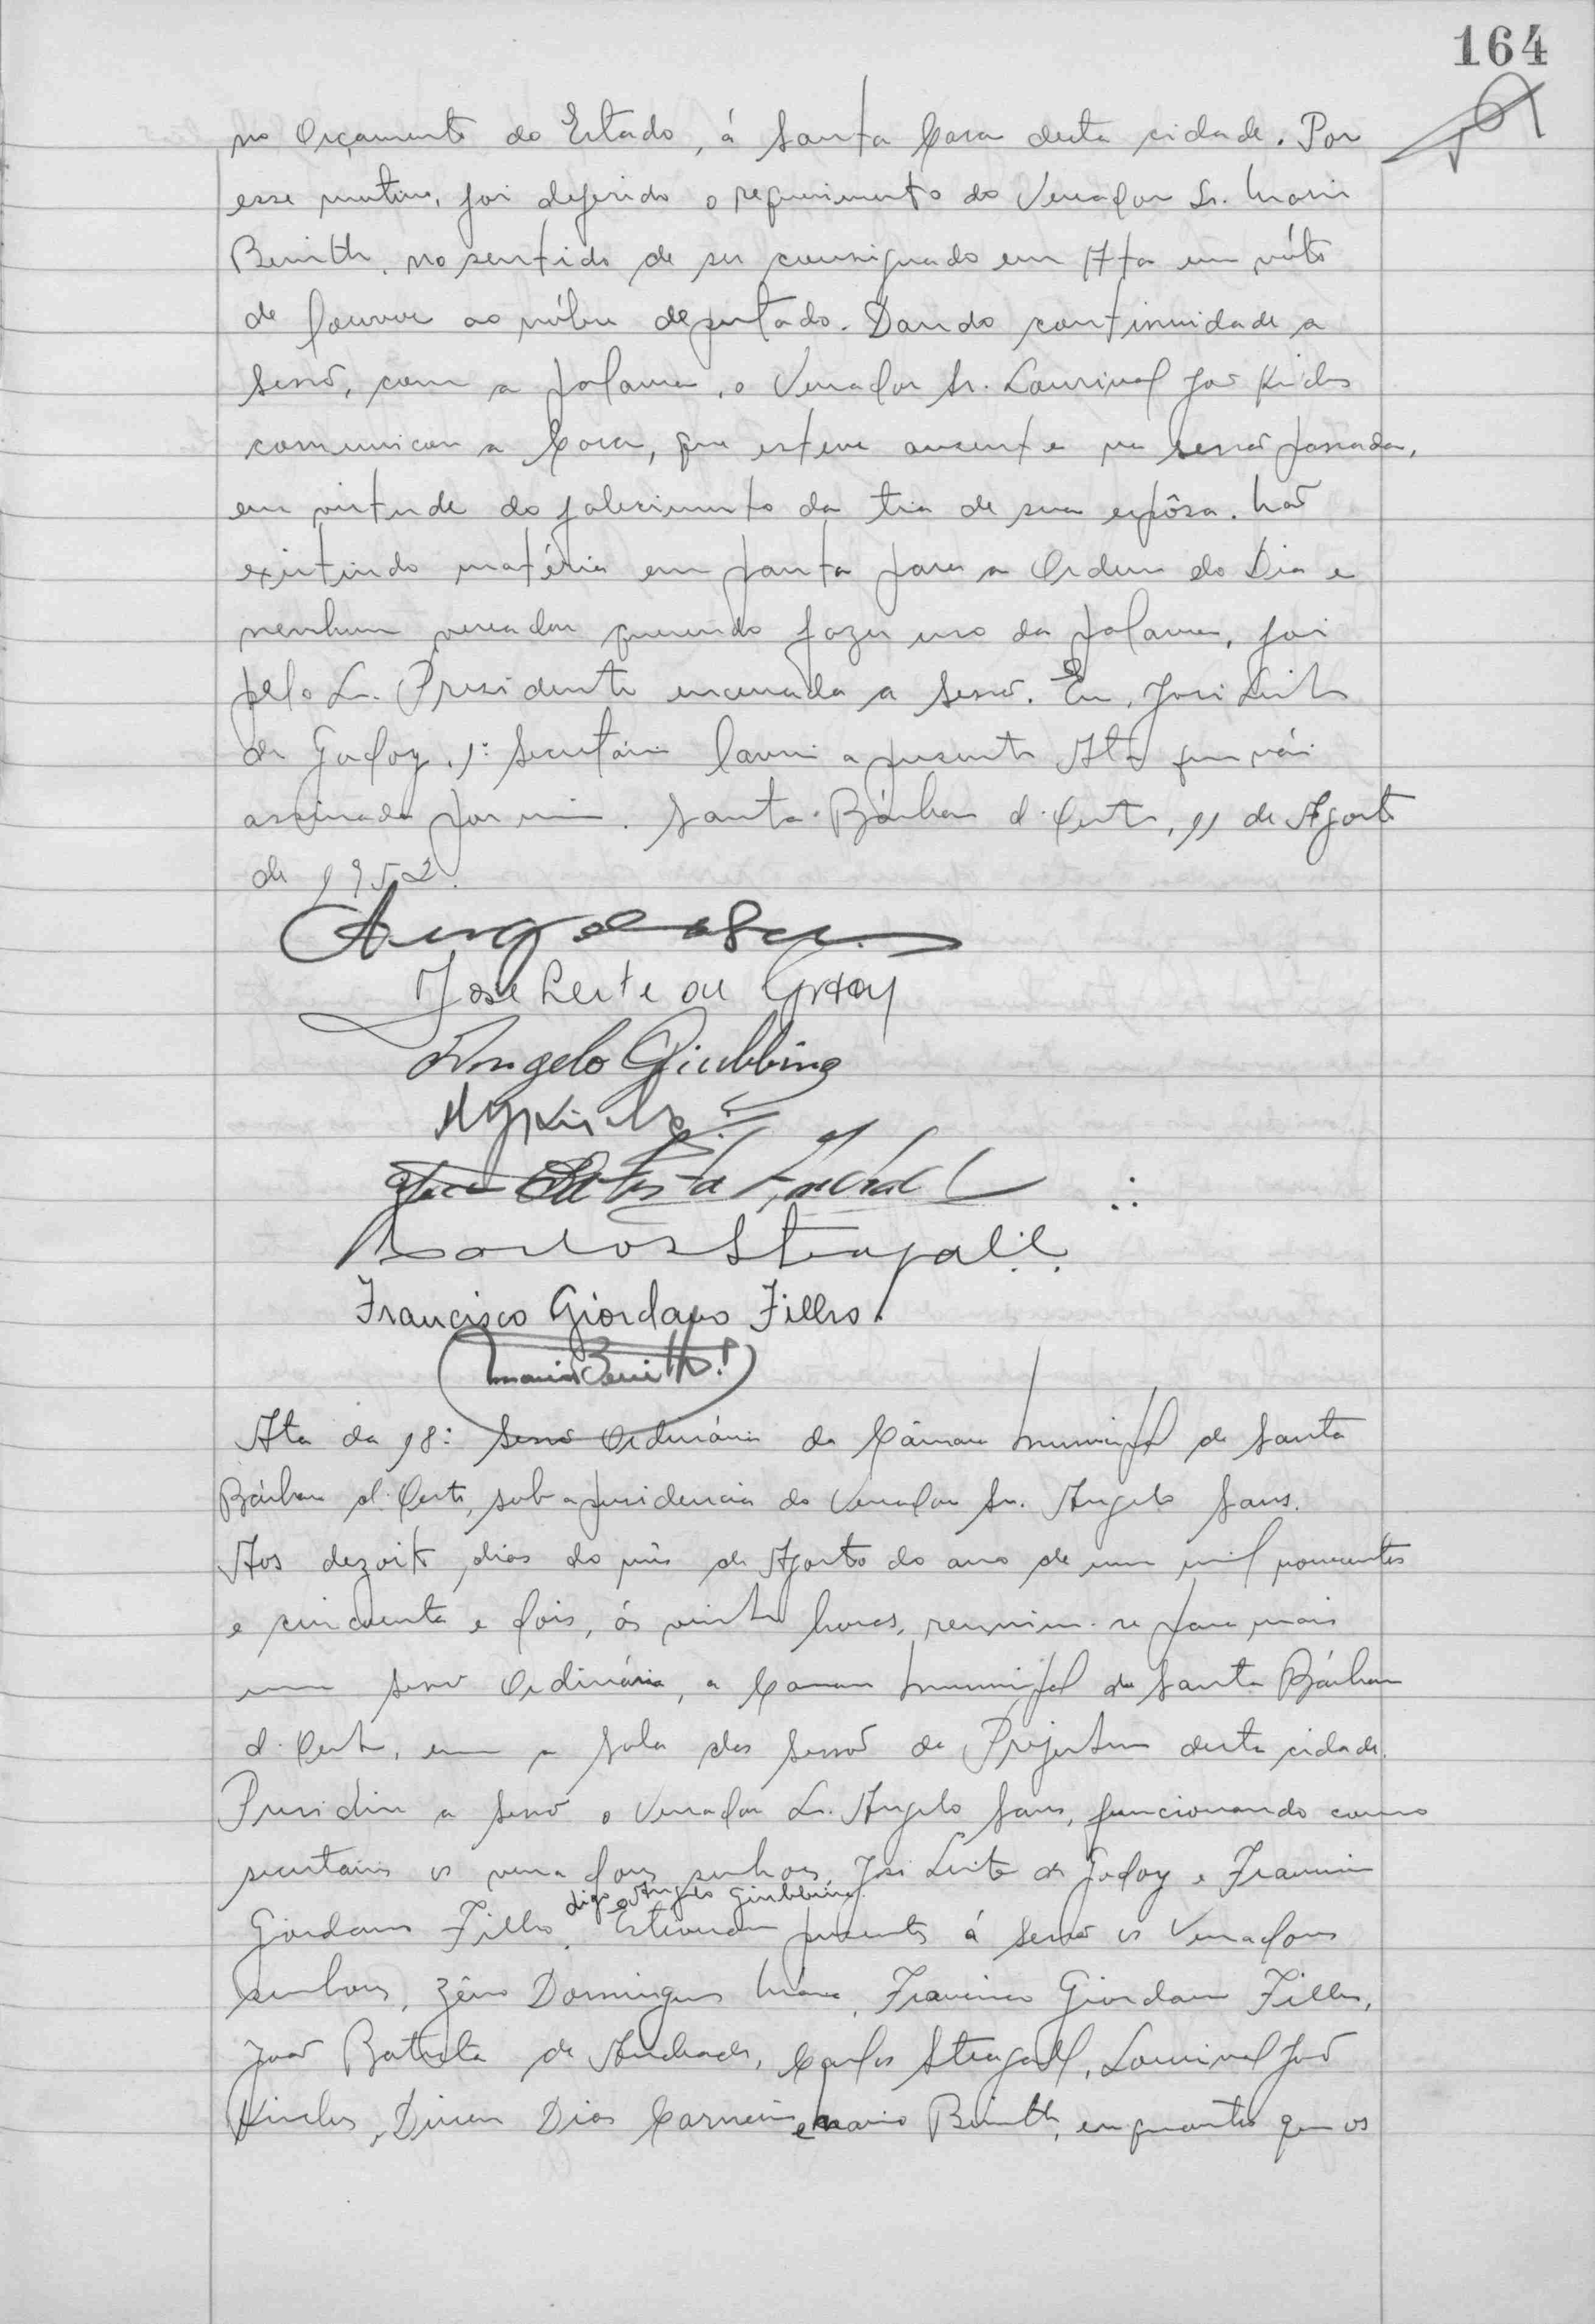 164
no Orçamento do Estado, á Santa Casa desta cidade. Por
esse motivo, foi deferido o requerimento do Vereador Sr. Mario
Benith, no sentido de ser consignado em Ata um vóto
de louvor ao nóbre deputado. Dando continuidade a
sessão, com a palavra, o Vereador Sr. Lourival José
comunicou a Casa, que esteve ausente na sessão passada,
em virtude do falecimento da tia de sua espôsa. Não
existindo matéria em pauta para a Ordem do Dia e
nenhum vereador querendo fazer uso da palavra, foi
pelo Sr. Presidente encerrada a sessão. Eu, José Leite
de Godoy, 1º Secretário lavrei a presente Ata que vái
assinada por mim. Santa Bárbara d'Oeste, 11 de Agosto
de 1952.
José Leite de Godoy
Angelo Giubbina
Carlos Steagall
Francisco Giordano Filho
Mario Benith
Ata da 18ª Sessão Ordinária da Câmara Municipal de Santa
Bárbara d'Oeste, sob a presidencia do Vereador Sr. Angelo Sans.
Aos dezoito dias do mês de Agosto do ano de um mil novecentos
e cincoenta e dois, ás vinte horas, reuniu-se para mais
uma sessão Ordinária, a Camara Municipal de Santa Bárbara
d'Oeste, em a Sala das Sessões da Prefeitura desta cidade.
Presidiu a sessão o Vereador Sr. Angelo Sans, funcionando como
secretarios os vereadores senhores José Leite de Godoy e Francisco
Giordano Filho, digo e Angelo Giubbina. Estiveram presentes á sessão os Vereadores
senhores, Zêno Domingues Maia, Francisco Giordano Filho,
João Batista de Andrade, Carlos Steagall, Lourival José
Dirceu Dias Carneiro e Mario Benith, enquanto que os